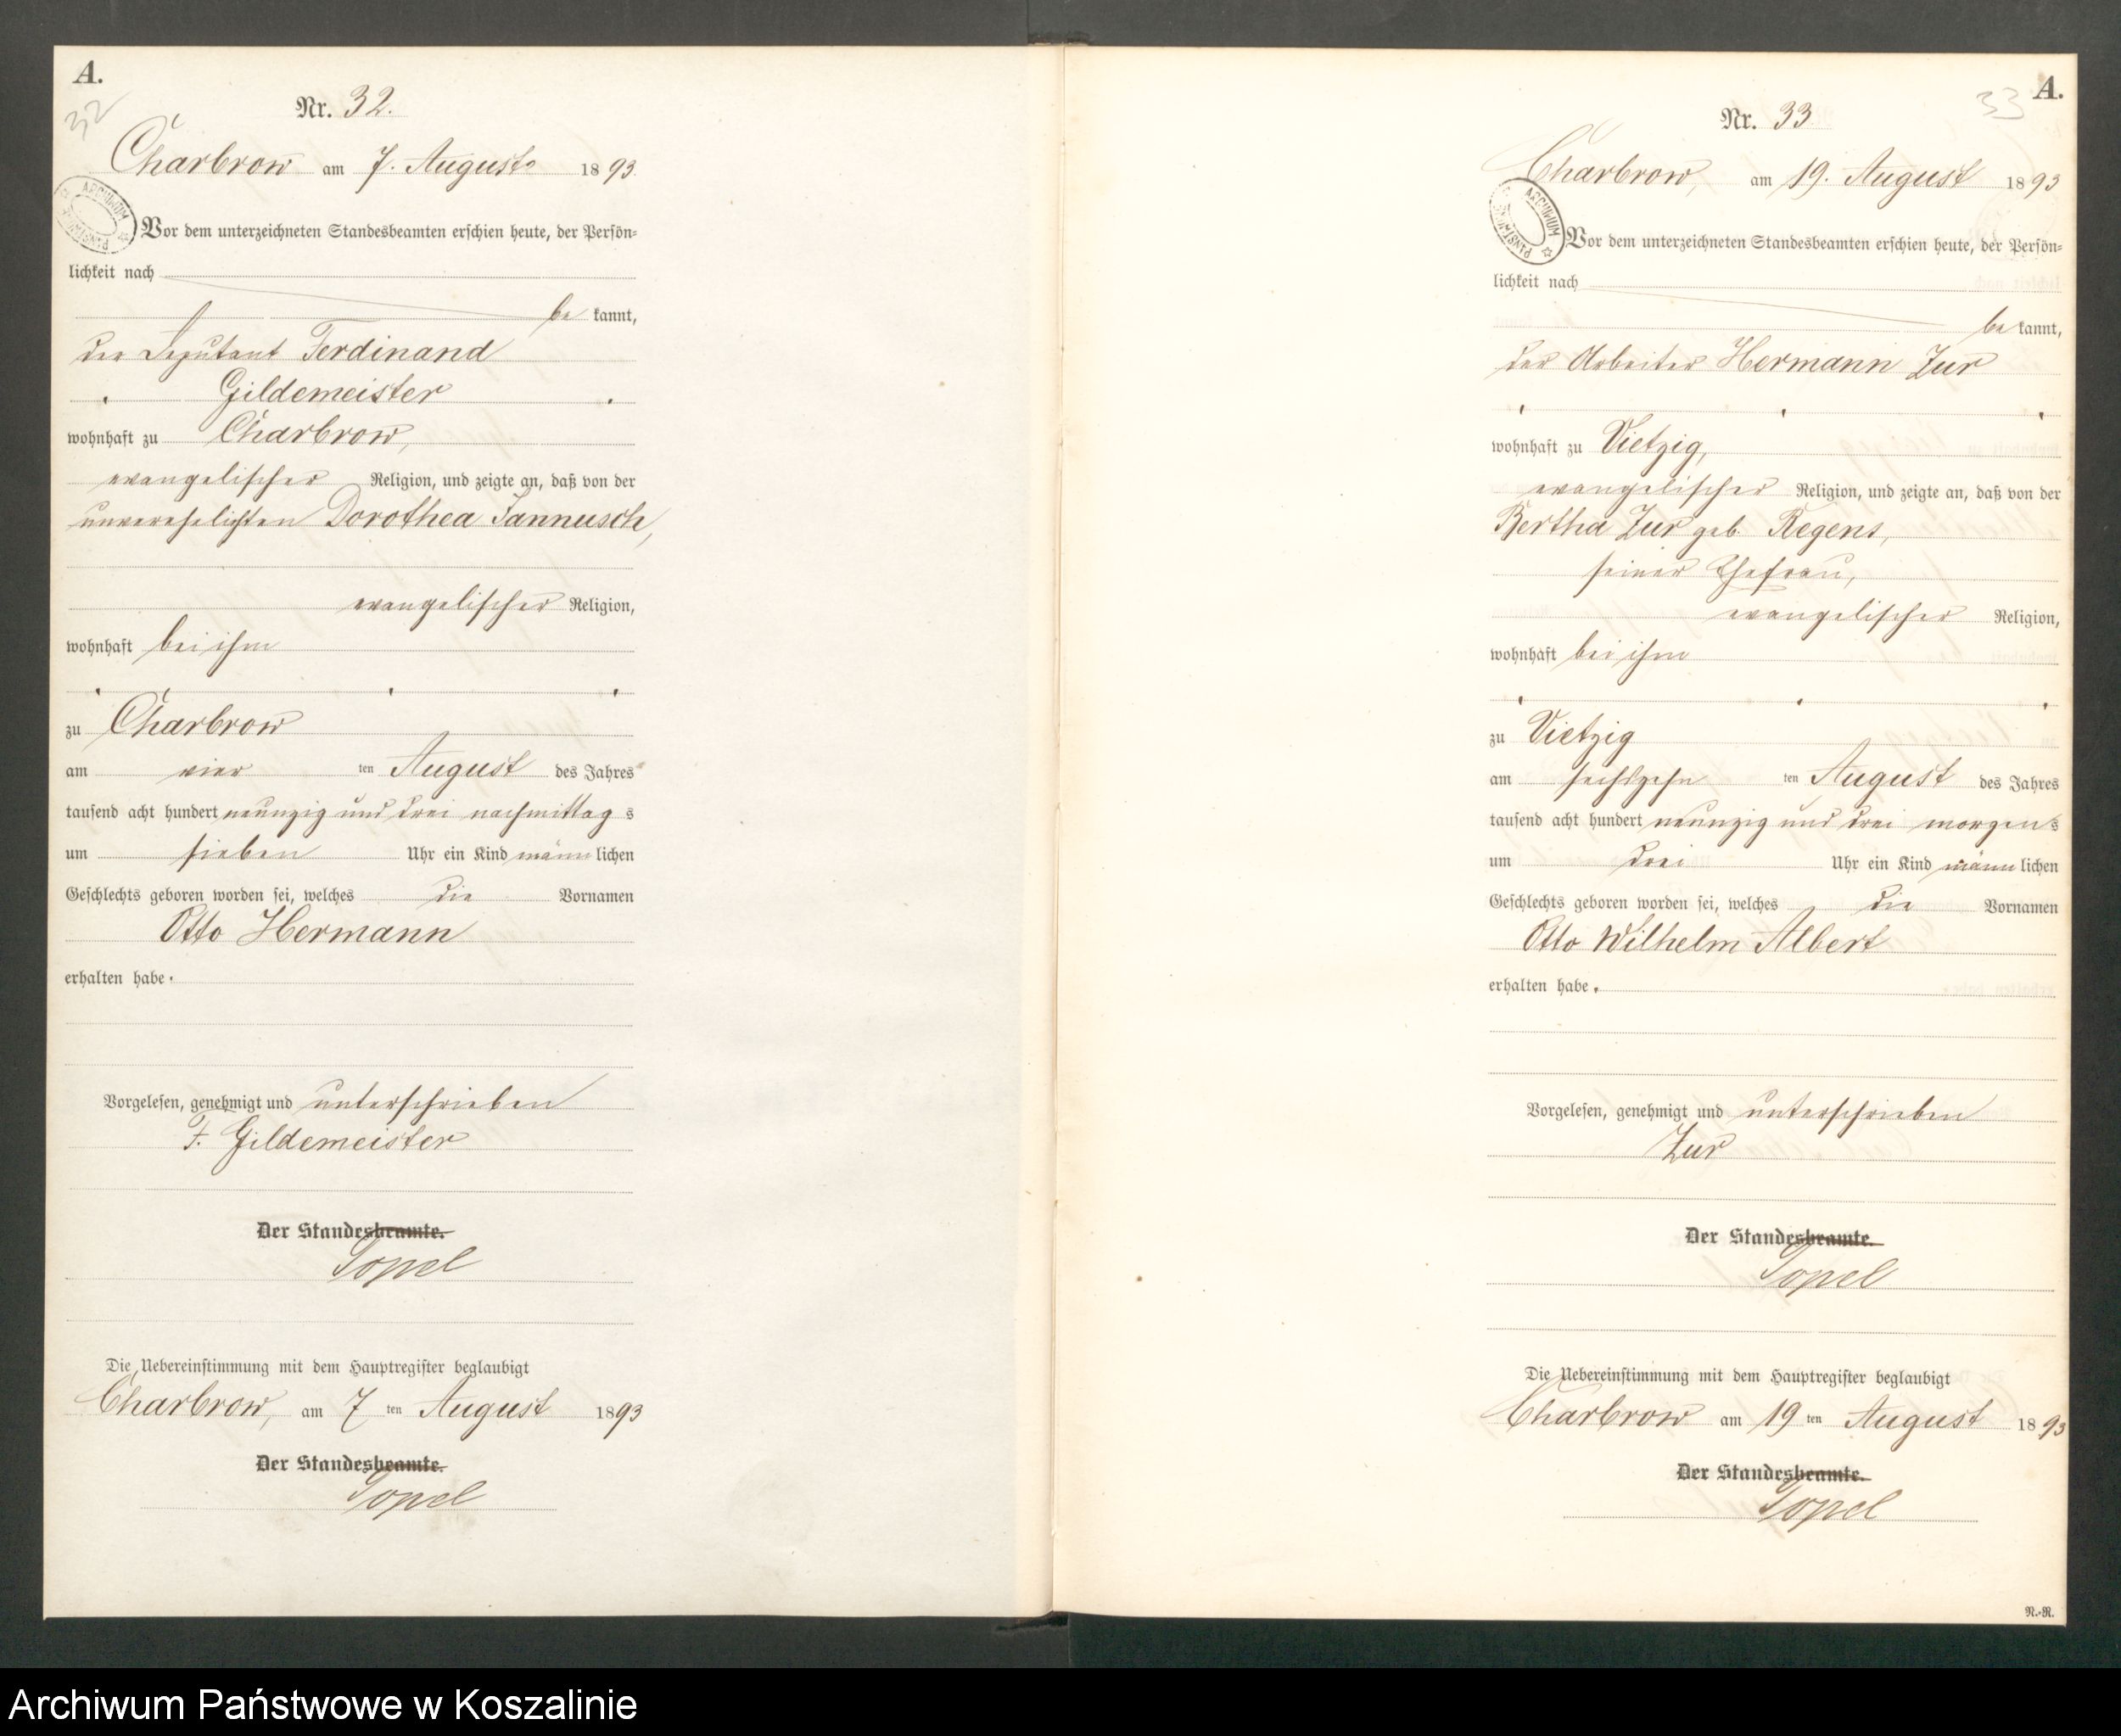 A.
32
Nr. 32.
Charbrow am 7. August 1893.
ARCHIWUM PAŃSTWOWE
Vor dem unterzeichneten Standesbeamten erschien heute, der Persön-
lichkeit nach
be kannt,
der Deputant Ferdinand
Gildemeister
wohnhaft zu Charbrow,
evangelischer Religion, und zeigte an, daß von der
unverehelichten Dorothea Jannusch,
evangelischer Religion,
wohnhaft bei ihm
zu Charbrow
am vier ten August des Jahres
tausend acht hundert neunzig und drei nachmittag s
um sieben Uhr ein Kind männ lichen
Geschlechts geboren worden sei, welches die Vornamen
Otto Hermann
erhalten habe.
Vorgelesen, genehmigt und unterschrieben
F. Gildemeister
Der Standesbeamte.
Topel
Die Uebereinstimmung mit dem Hauptregister beglaubigt
Charbrow, am 7 ten August 1893
Der Standesbeamte.
Topel
A.
33
Nr. 33
Charbrow, am 19. August 1893
ARCHIWUM PAŃSTWOWE
Vor dem unterzeichneten Standesbeamten erschien heute, der Persön-
lichkeit nach
be kannt,
der Arbeiter Hermann Zur
wohnhaft zu Vietzig,
evangelischer Religion, und zeigte an, daß von der
Bertha Zur geb. Regens,
seiner Ehefrau,
evangelischer Religion,
wohnhaft bei ihm
zu Vietzig
am sechszehn ten August des Jahres
tausend acht hundert neunzig und drei morgen s
um drei Uhr ein Kind männ lichen
Geschlechts geboren worden sei, welches die Vornamen
Otto Wilhelm Albert
erhalten habe.
Vorgelesen, genehmigt und unterschrieben
Zur
Der Standesbeamte.
Topel
Die Uebereinstimmung mit dem Hauptregister beglaubigt
Charbrow am 19 ten August 1893
Der Standesbeamte.
Topel
N.-R.
Archiwum Państwowe w Koszalinie